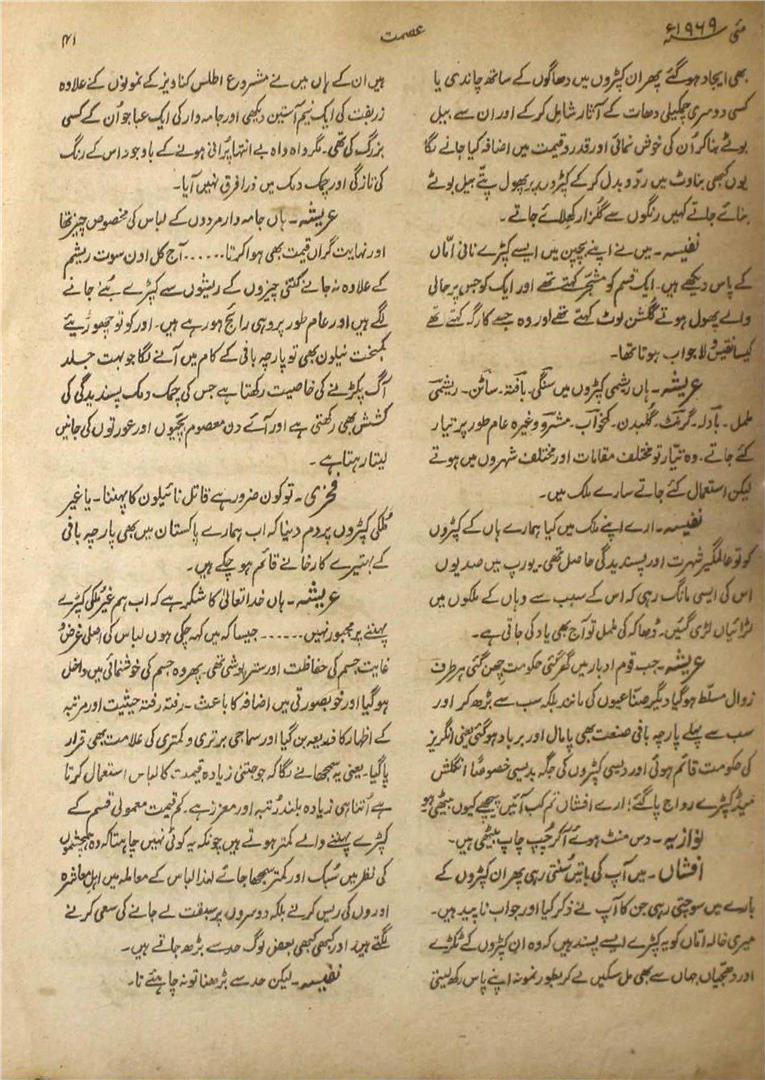 مئی ۱۹۶۹ء
عصمت
۴۱
بھی ایجاد ہوگئے پھر ان کپڑوں میں دھاگوں کے ساتھ چاندی یا
کسی دوسری چمکیلی دھات کے آثار شامل کرکے اور ان سے بیل
بوٹے بناکر اُن کی خوش نمائی اور قدر و قیمت میں اضافہ کیا جانے لگا
یوں کبھی بناوٹ میں ردّ و بدل کرکے کپڑوں پر پھول پتّے بیل بوٹے
بنائے جاتے کہیں رنگوں سے گلزار کھلائے جاتے۔
نفیسہ۔ میں نے اپنے بچپن میں ایسے کپڑے نانی امّاں
کے پاس دیکھے ہیں۔ ایک قسم کو مشجر کہتے تھے اور ایک کو جس پر جالی
والے پھول ہوتے گلشن لوٹ کہتے تھے اور وہ جسے کارگہ کہتے تھے
کیسا نفیس و لاجواب ہوتا تھا۔
عریشہ۔ ہاں ریشمی کپڑوں میں سنگی۔ بافتہ۔ ساٹن۔ ریشمی
ململ۔ بادلہ۔ گرنٹ۔ گلبدن۔ کمخواب۔ مشرو وغیرہ عام طور پر تیار
کئے جاتے۔ وہ تیّار تو مختلف مقامات اور مختلف شہروں میں ہوتے
لیکن استعمال کئے جاتے سارے ملک میں۔
نفیسہ۔ ارے اپنے ملک میں کیا ہمارے ہاں کے کپڑوں
کو تو عالمگیر شہرت اور پسندیدگی حاصل تھی۔ یورپ میں صدیوں
اس کی ایسی مانگ رہی کہ اس کے سبب سے وہاں کے ملکوں میں
لڑائیاں لڑی گئیں۔ ڈھاکہ کی ململ تو آج بھی یاد کی جاتی ہے۔
عریشہ۔ جب قوم ادبار میں گھر گئی حکومت چھن گئی ہر طرف
زوال مسلّط ہوگیا دیگر صناعیوں کی مانند بلکہ سب سے بڑھ کر اور
سب سے پہلے پارچہ بافی صنعت بھی پامال اور برباد ہوگئی یعنی انگریز
کی حکومت قائم ہوئی اور دیسی کپڑوں کی جگہ بدیسی خصوصاً انگلش
میڈ کپڑے رواج پاگئے؛ ارے افشاں تم کب آئیں پیچھے کیوں بیٹھی ہو
نوازیہ۔ دس منٹ ہوئے آکر چپ چاپ بیٹھی ہیں۔
افشاں۔ میں آپ کی باتیں سُنتی رہی پھر ان کپڑوں کے
بارے میں سوچتی رہی جن کا آپ نے ذکر کیا اور جو اب ناپید ہیں۔
میری خالہ امّاں کو یہ کپڑے ایسے پسند ہیں کہ وہ ان کپڑوں کے ٹکڑے
اور دھجیاں جہاں سے بھی مل سکیں لے کر بطور نمونہ اپنے پاس رکھ لیتی
ہیں ان کے ہاں میں نے مشروع اطلس کناویز کے نمونوں کے علاوہ
زربفت کی ایک نیم آستین دیکھی اور جامہ وار کی ایک عبا جو اُن کے کسی
بزرگ کی تھی۔ مگر واہ واہ بے انتہا پرانی ہونے کے باوجود اس کے رنگ
کی تازگی اور چمک دمک میں ذرا فرق نہیں آیا۔
عریشہ۔ ہاں جامہ وار مردوں کے لباس کی مخصوص چیز تھا
اور نہایت گراں قیمت بھی ہوا کرتا...... آج کل اون سوت ریشم
کے علاوہ نہ جانے کتنی چیزوں کے ریشوں سے کپڑے بُنے جانے
لگے ہیں اور عام طور پر وہی رائج ہورہے ہیں۔ اور کو تو چھوڑیئے
کمبخت نیلون بھی تو پارچہ بافی کے کام میں آنے لگا جو بہت جلد
آگ پکڑنے کی خاصیت رکھتا ہے جس کی چمک دمک پسندیدگی کی
کشش بھی رکھتی ہے اور آئے دن معصوم بچّیوں اور عورتوں کی جانیں
لیتا رہتا ہے۔
فخری۔ تو کون ضرور ہے قاتل نائیلون کا پہننا۔ یا غیر
مُلکی کپڑوں پر دم دینا کہ اب ہمارے پاکستان میں بھی پارچہ بافی
کے بہتیرے کارخانے قائم ہوچکے ہیں۔
عریشہ۔ ہاں خدا تعالیٰ کا شکر ہے کہ اب ہم غیر ملکی کپڑے
پہننے پر مجبور نہیں...... جیسا کہ میں کہہ چکی ہوں لباس کی اصلی غرض و
غایت جسم کی حفاظت اور ستر پوشی تھی۔ پھر وہ جسم کی خوشنمائی میں داخل
ہوگیا اور خوبصورتی میں اضافہ کا باعث۔ رفتہ رفتہ حیثیت اور مرتبہ
کے اظہار کا ذریعہ بن گیا اور سماجی برتری و کمتری کی علامت بھی قرار
پاگیا۔ یعنی یہ سمجھا جانے لگا کہ جو جتنی زیادہ قیمت کا لباس استعمال کرتا
ہے اُتنا ہی زیادہ بلند رُتبہ اور معزز ہے۔ کم قیمت معمولی قسم کے
کپڑے پہننے والے کمتر ہوتے ہیں چونکہ یہ کوئی نہیں چاہتا کہ وہ ہمچشموں
کی نظر میں سُبک اور کمتر سمجھا جائے لہٰذا لباس کے معاملہ میں اہلِ معاشرہ
اوروں کی ریس کرنے بلکہ دوسروں پر سبقت لے جانے کی سعی کرنے
لگتے ہیں اور کبھی کبھی بعض لوگ حد سے بڑھ جاتے ہیں۔
نفیسہ۔ لیکن حد سے بڑھنا تو نہ چاہئے نا۔